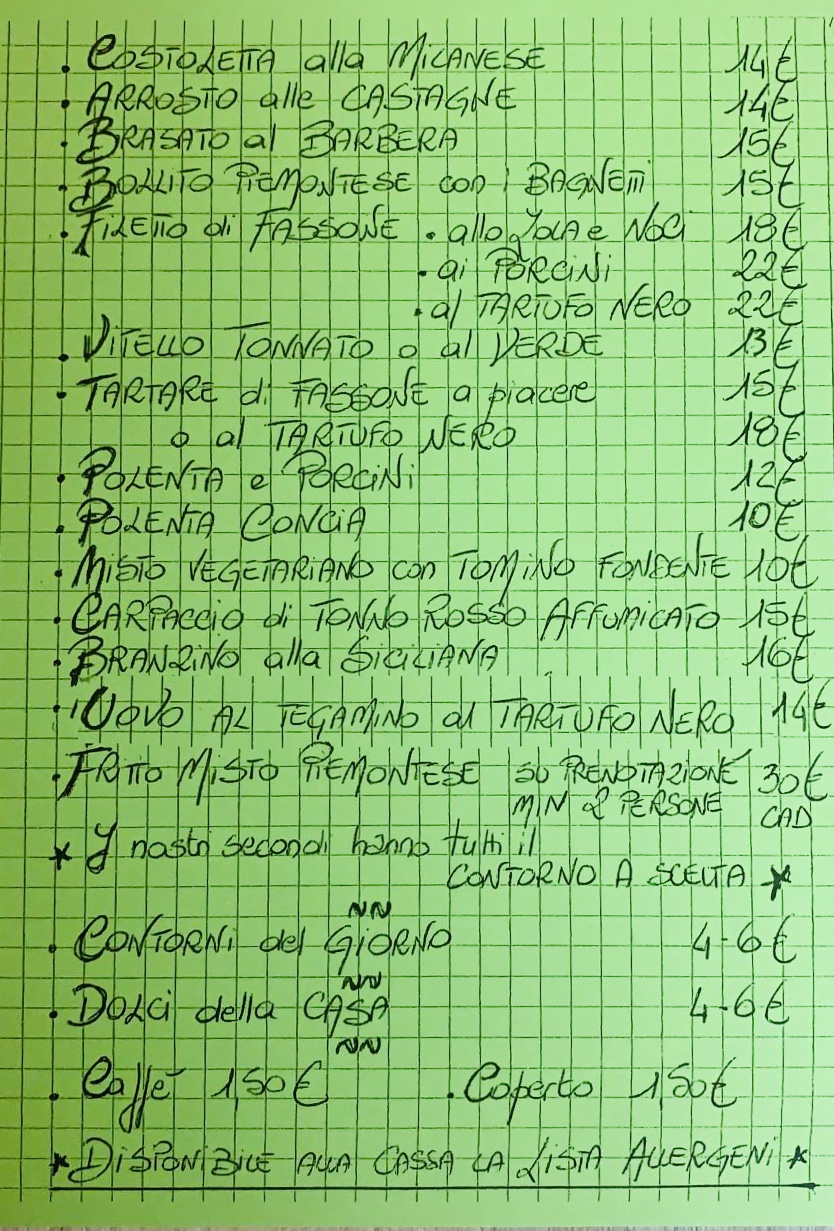 • COSTOLETTA alla MILANESE 14€
• ARROSTO alle CASTAGNE 14€
• BRASATO al BARBERA 15€
• BOLLITO PIEMONTESE con i BAGNETTI 15€
• FILETTO di FASSONE • allo ZOLA e NOCI 18€
• ai PORCINI 22€
• al TARTUFO NERO 22€
• VITELLO TONNATO o al VERDE 13€
• TARTARE di FASSONE a piacere 15€
o al TARTUFO NERO 18€
• POLENTA e PORCINI 12€
• POLENTA CONCIA 10€
• MISTO VEGETARIANO con TOMINO FONDENTE 10€
• CARPACCIO di TONNO ROSSO AFFUMICATO 15€
• BRANZINO alla SICILIANA 16€
• UOVO AL TEGAMINO al TARTUFO NERO 14€
• FRITTO MISTO PIEMONTESE SU PRENOTAZIONE 30€
MIN 2 PERSONE CAD
* I nostri secondi hanno tutti il
CONTORNO A SCELTA *
• CONTORNI del GIORNO 4-6€
• DOLCI della CASA 4-6€
• Caffè 1,50€ • Coperto 1,50€
* DISPONIBILE ALLA CASSA LA LISTA ALLERGENI *